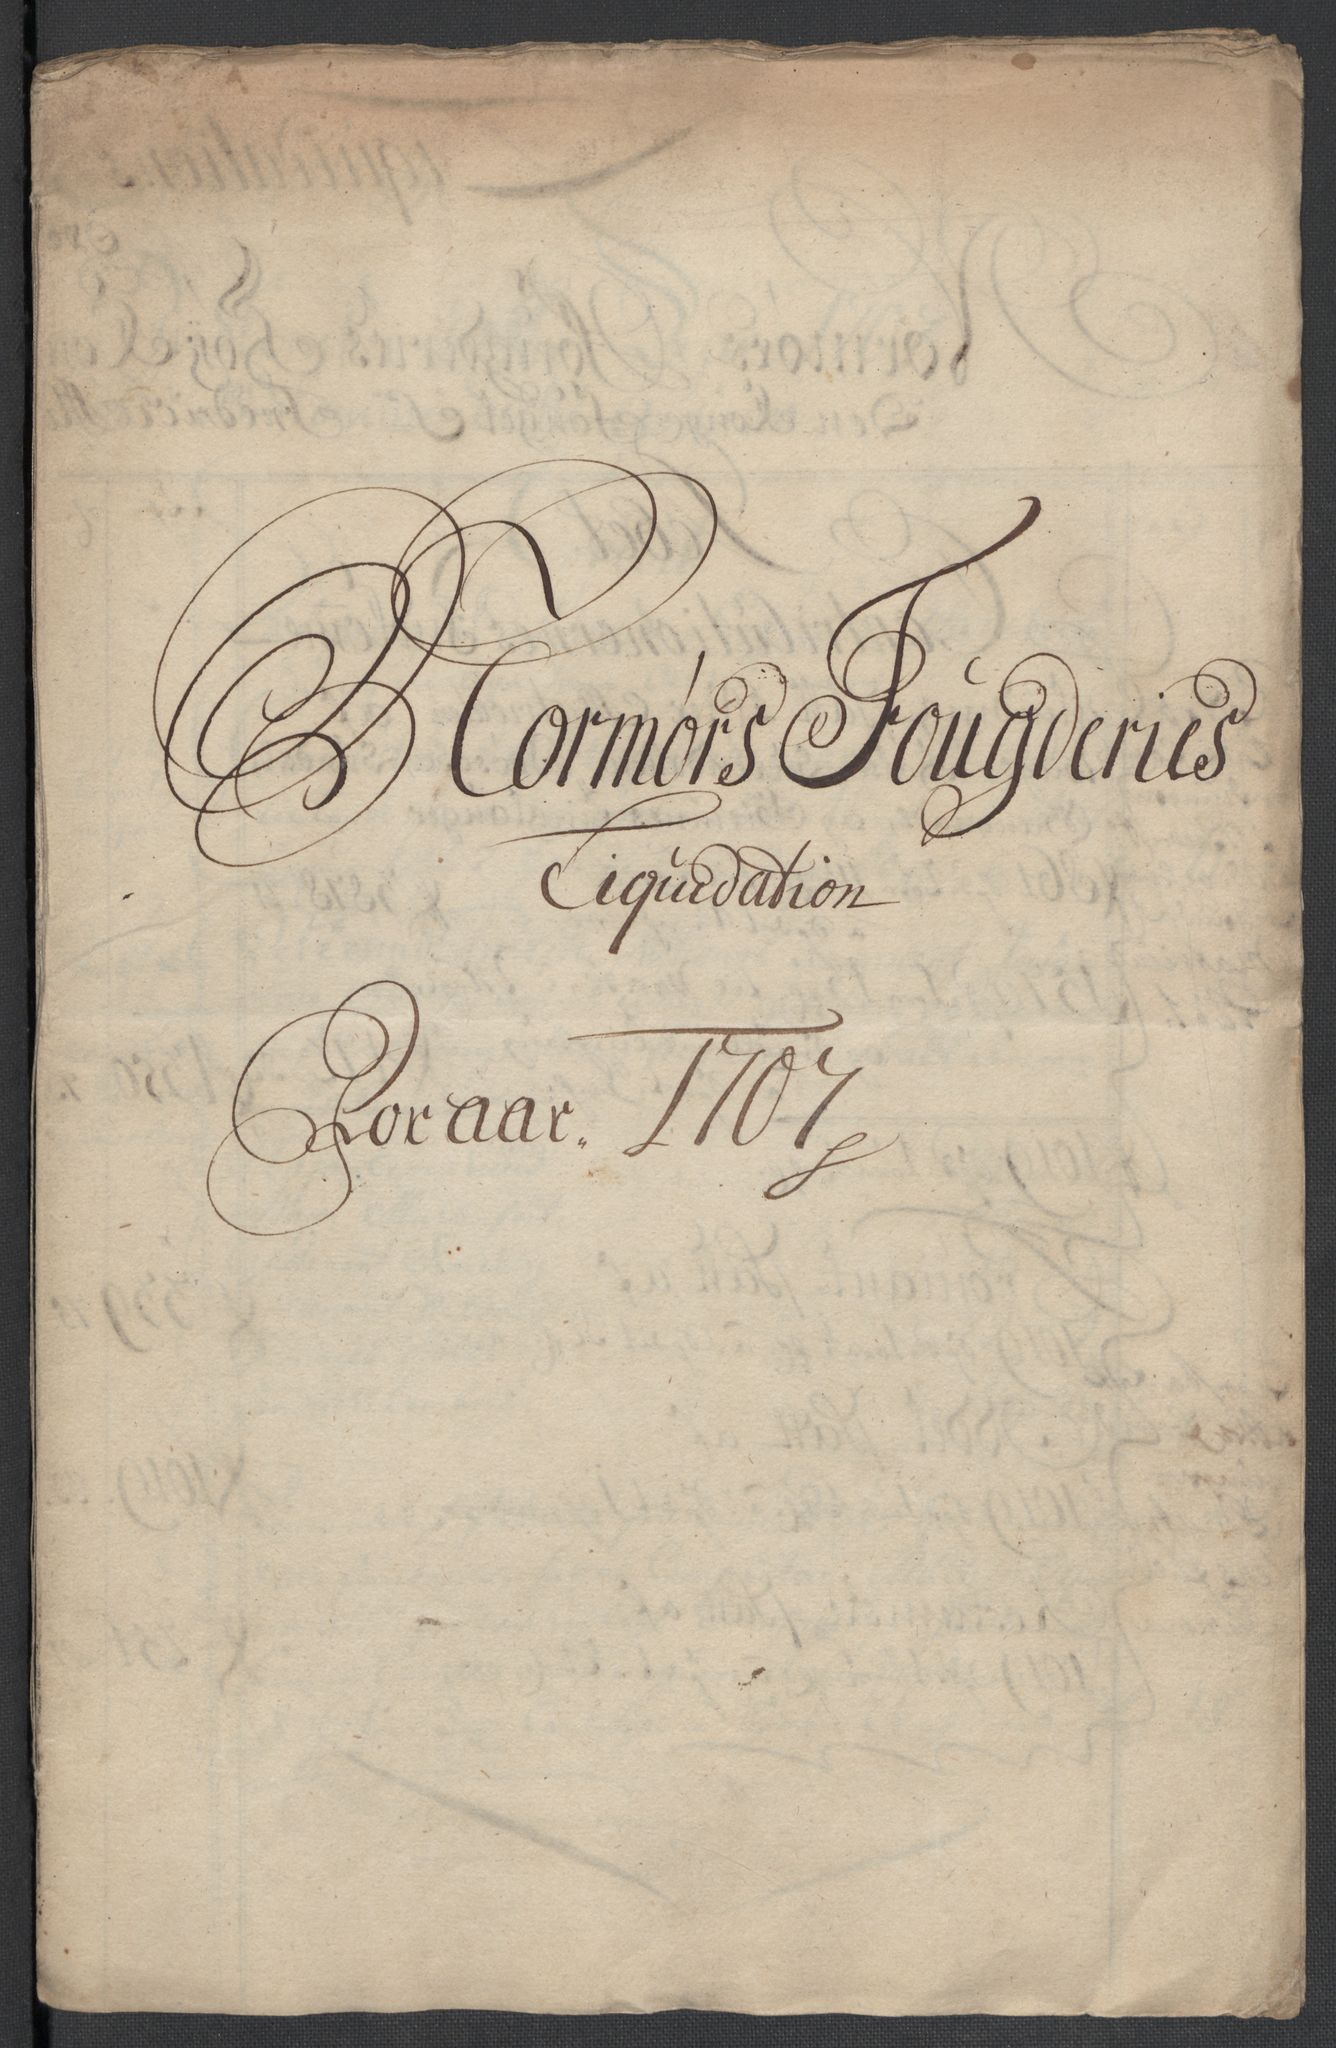 Normörs Fougderies
Liquidation
For aar. 1707